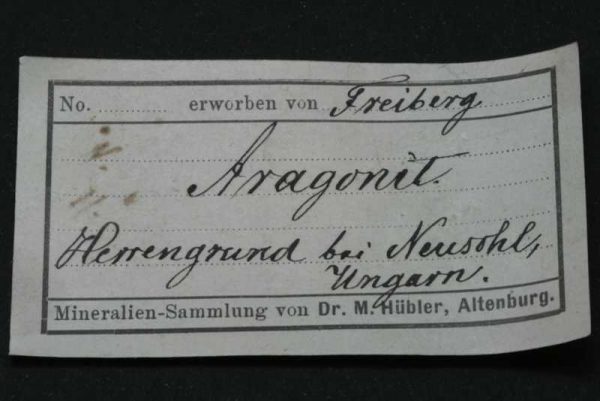 No. .......... erworben von Freiberg
Aragonit.
Herrengrund bei Neusohl,
Ungarn.
Mineralien-Sammlung von Dr. M. Hübler, Altenburg.